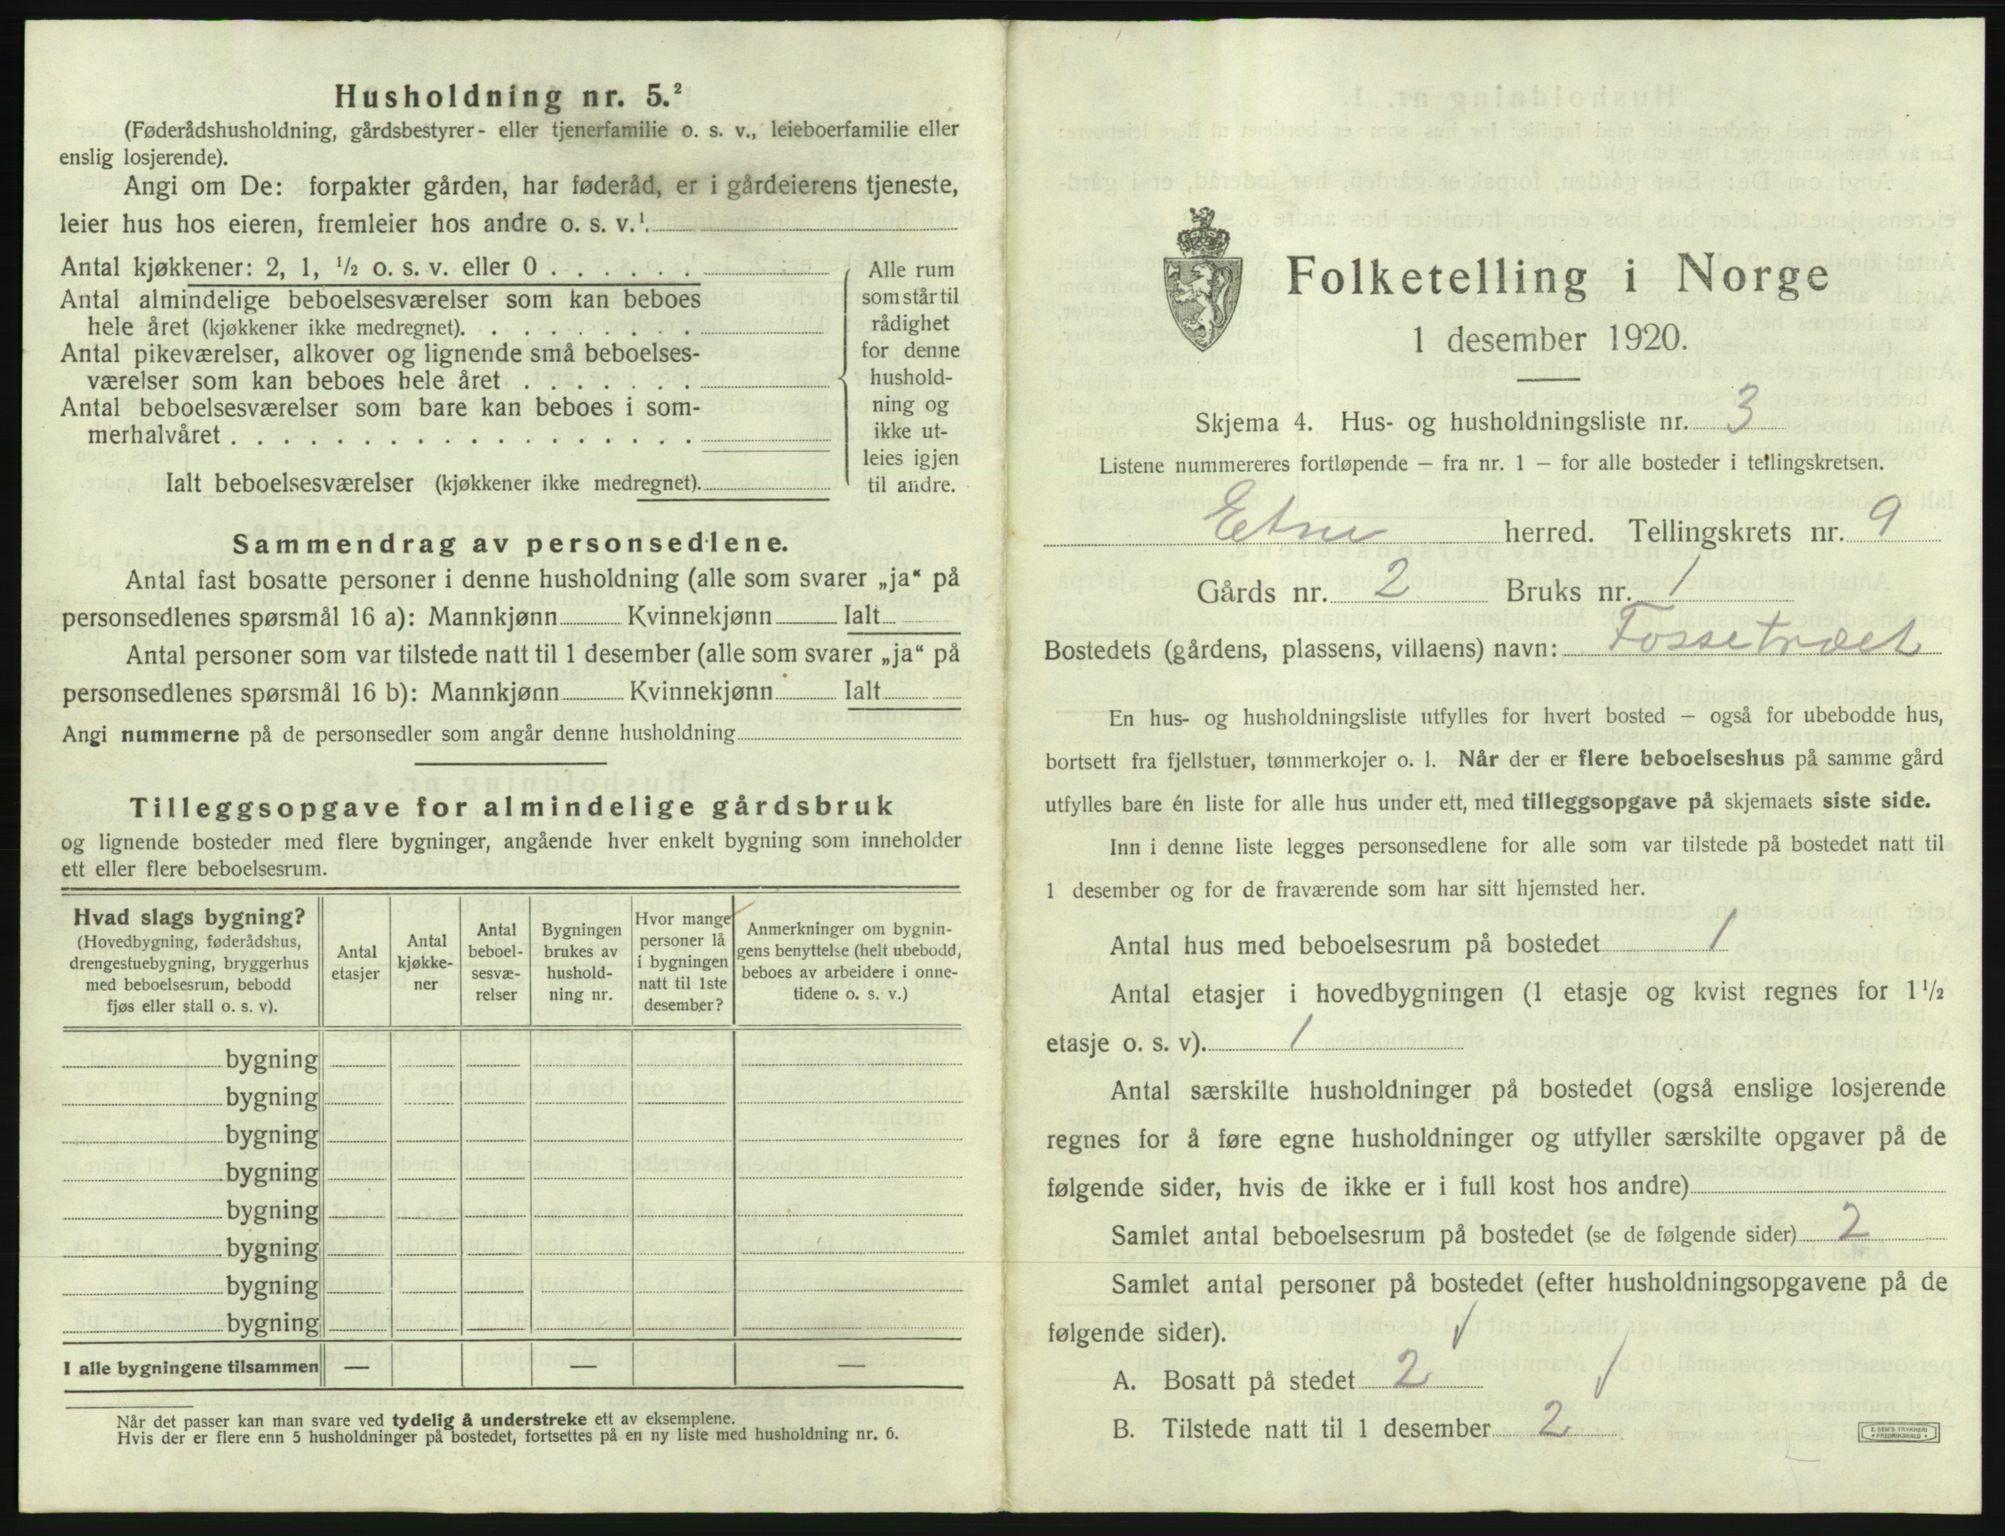 Husholdning nr. 5.²
(Føderådshusholdning, gårdsbestyrer- eller tjenerfamilie o. s. v., leieboerfamilie eller
enslig losjerende).
Angi om De: forpakter gården, har føderåd, er i gårdeierens tjeneste,
leier hus hos eieren, fremleier hos andre o. s. v.¹
Antal kjøkkener: 2, 1, ½ o. s. v. eller 0 . . . . . .
Antal almindelige beboelsesværelser som kan beboes
hele året (kjøkkener ikke medregnet). . . . . . . . .
Antal pikeværelser, alkover og lignende små beboelses-
værelser som kan beboes hele året . . . . . . . .
Antal beboelsesværelser som bare kan beboes i som-
merhalvåret . . . . . . . . . . . . . . . . . .
Ialt beboelsesværelser (kjøkkener ikke medregnet).
Alle rum
som står til
rådighet
for denne
hushold-
ning og
ikke ut-
leies igjen
til andre.
Sammendrag av personsedlene.
Antal fast bosatte personer i denne husholdning (alle som svarer „ja“ på
personsedlenes spørsmål 16 a): Mannkjønn Kvinnekjønn Ialt
Antal personer som var tilstede natt til 1 desember (alle som svarer „ja“ på
personsedlenes spørsmål 16 b): Mannkjønn Kvinnekjønn Ialt
Angi nummerne på de personsedler som angår denne husholdning
Tilleggsopgave for almindelige gårdsbruk
og lignende bosteder med flere bygninger, angående hver enkelt bygning som inneholder
ett eller flere beboelsesrum.
Hvad slags bygning?
(Hovedbygning, føderådshus,
drengestuebygning, bryggerhus
med beboelsesrum, bebodd
fjøs eller stall o. s. v).
Antal
etasjer
Antal
kjøkke-
ner
Antal
beboel-
sesvæ-
relser
Bygningen
brukes av
hushold-
ning nr.
Hvor mange
personer lå
i bygningen
natt til 1ste
desember?
Anmerkninger om bygnin-
gens benyttelse (helt ubebodd,
beboes av arbeidere i onne-
tidene o. s. v.)
bygning
bygning
bygning
bygning
bygning
bygning
bygning
bygning
I alle bygningene tilsammen — — —
Når det passer kan man svare ved tydelig å understreke ett av eksemplene.
Hvis der er flere enn 5 husholdninger på bostedet, fortsettes på en ny liste med husholdning nr. 6.
Folketelling i Norge
1 desember 1920.
Skjema 4. Hus- og husholdningsliste nr. 3
Listene nummereres fortløpende – fra nr. 1 – for alle bosteder i tellingskretsen.
Etne herred. Tellingskrets nr. 9
Gårds nr. 2 Bruks nr. 1
Bostedets (gårdens, plassens, villaens) navn: Fossetræet
En hus- og husholdningsliste utfylles for hvert bosted – også for ubebodde hus,
bortsett fra fjellstuer, tømmerkojer o. l. Når der er flere beboelseshus på samme gård
utfylles bare én liste for alle hus under ett, med tilleggsopgave på skjemaets siste side.
Inn i denne liste legges personsedlene for alle som var tilstede på bostedet natt til
1 desember og for de fraværende som har sitt hjemsted her.
Antal hus med beboelsesrum på bostedet 1
Antal etasjer i hovedbygningen (1 etasje og kvist regnes for 1½
etasje o. s. v). 1
Antal særskilte husholdninger på bostedet (også enslige losjerende
regnes for å føre egne husholdninger og utfyller særskilte opgaver på de
følgende sider, hvis de ikke er i full kost hos andre)
Samlet antal beboelsesrum på bostedet (se de følgende sider) 2
Samlet antal personer på bostedet (efter husholdningsopgavene på de
følgende sider).
A. Bosatt på stedet 2
B. Tilstede natt til 1 desember 2
E. SEM'S TRYKKERI
FREDRIKSHALD